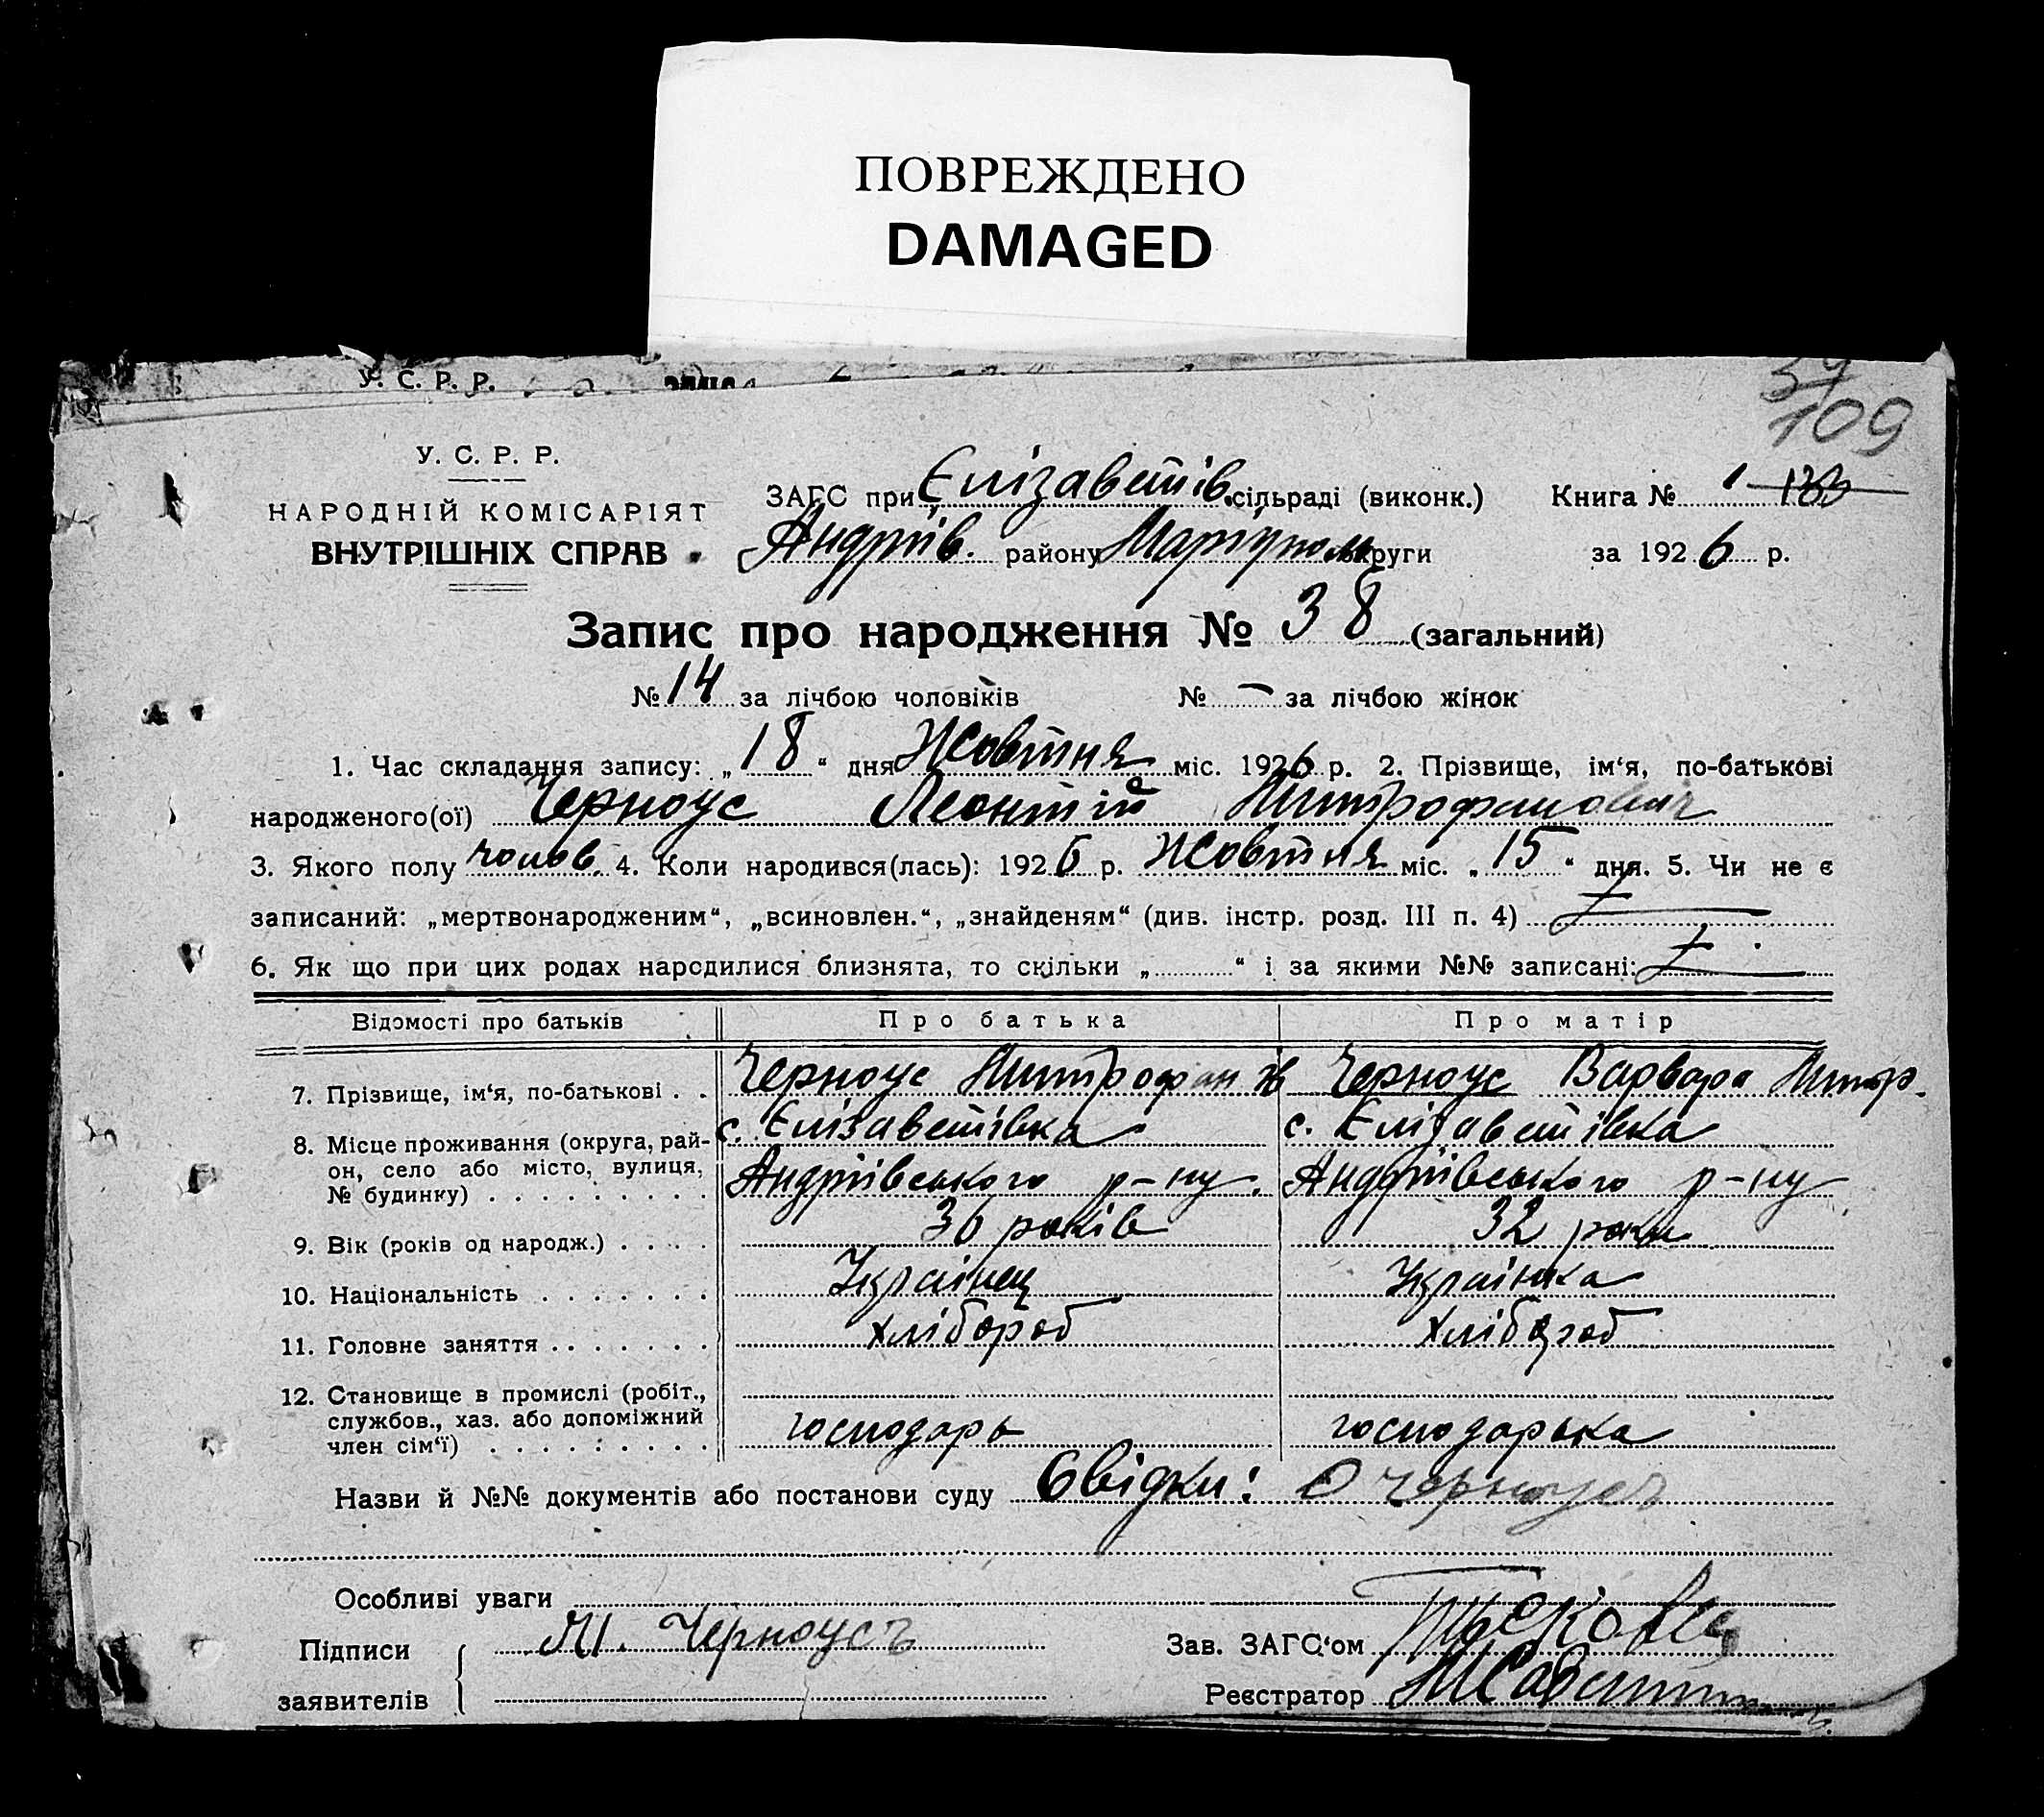 ПОВРЕЖДЕНО
DAMAGED
У. С. Р. Р.
109
У. С. Р. Р.
НАРОДНІЙ КОМІСАРІЯТ
ВНУТРІШНІХ СПРАВ
ЗАГС при Єлізаветів. сільраді (виконк.) Книга № 1
Андріїв. району Маріупол округи за 1926 р.
Запис про народження № 38 (загальний)
№ 14 за лічбою чоловіків № — за лічбою жінок
1. Час складання запису: „18“ дня Жовтня міс. 1926 р. 2. Прізвище, ім‘я, по-батькові
народженого(ої) Черноус Леонтій Митрофанович
3. Якого полу чолов. 4. Коли народився(лась): 1926 р. Жовтня міс. „15“ дня. 5. Чи не є
записаний: „мертвонародженим“, „всиновлен.“, „знайденям“ (див. інстр. розд. III п. 4)
6. Як що при цих родах народилися близнята, то скільки „ “ і за якими №№ записані:
Відомості про батьків Про батька Про матір
7. Прізвище, ім‘я, по-батькові . . Черноус Митрофан Черноус Варвара Митр.
8. Місце проживання (округа, рай- с. Єлізаветівка с. Єлізаветівка
он, село або місто, вулиця,
№ будинку) . . . . . . . . . Андріївського р-ну. Андріївського р-ну
9. Вік (років од народж.) . . . . 36 років 32 роки
10. Національність . . . . . . . Українец Українка
11. Головне заняття . . . . . . . хлібороб хлібороб
12. Становище в промислі (робіт.,
службов., хаз. або допоміжний
член сім‘ї) . . . . . . . . . господарь господарька
Назви й №№ документів або постанови суду Свідки: О Черноусъ
Особливі уваги
Підписи М. Черноусъ Зав. ЗАГС‘ом
заявителів Реєстратор